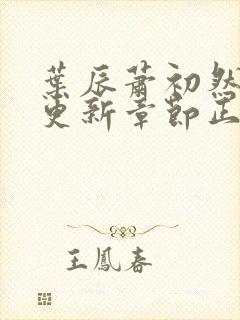 葉辰蕭初然
更新章節正
王鳳春